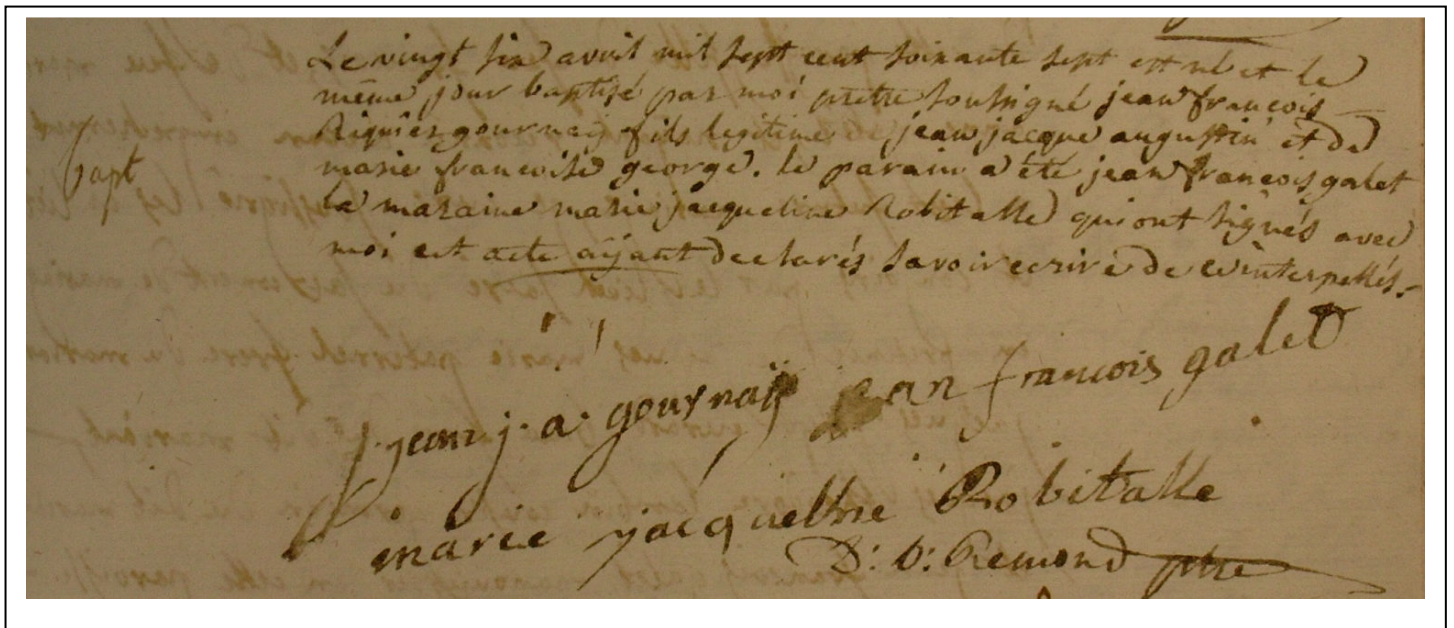 Le vingt six avril mil sept cent soixante sept est né et le
même jour baptisé par moi prêtre soussigné jean françois
Riquier gournay fils legitime jean jacque augustin et de
marie francoise george. le parain a été jean françois galet
la maraine marie jacqueline Robitalle qui ont signés avec
bapt
moi cet acte aÿant declarés savoir ecrire de ce interpellés.
jean j. a. gournaÿ jean francois galet
marie jacqueline Robitalle
D: D: Remond ptre